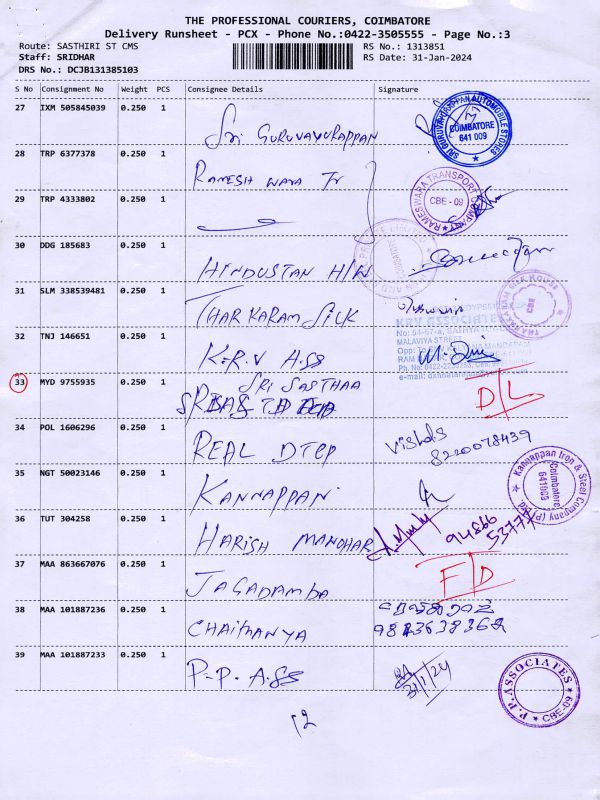 THE PROFESSIONAL COURIERS, COIMBATORE
Delivery Runsheet - PCX - Phone No.:0422-3505555 - Page No.:3
Route: SASTHIRI ST CMS
RS No.: 1313851
Staff: SRIDHAR
RS Date: 31-Jan-2024
DRS No.: DCJB131385103
S No Consignment No Weight PCS Consignee Details Signature
27 IXM 505845039 0.250 1 Sri GURUVAYURAPPAN
SRI GURUVAYURAPPAN AUTOMOBILE STORES
COIMBATORE
641 009
28 TRP 6377378 0.250 1 RAMESH WARA Tr
29 TRP 4333802 0.250 1
RAMESWARA TRANSPORT COMPANY
CBE - 09
30 DDG 185683 0.250 1 HINDUSTAN H/W
31 SLM 338539481 0.250 1 THARKARAM SILK
CBE
32 TNJ 146651 0.250 1 K.R.V ASS
KRV ASSOCIATES
MALAVIYA STREET
33 MYD 9755935 0.250 1 SRI SASTHAA
D/L
34 POL 1606296 0.250 1 REAL DTCP
Vishals
8220078439
35 NGT 50023146 0.250 1 KANNAPPAN
Kannappan Iron & Steel Company (P) Ltd.
Coimbatore
641009
36 TUT 304258 0.250 1 HARISH MANOHAR
94866
53777
37 MAA 863667076 0.250 1 JAGADAMBA
F/D
38 MAA 101887236 0.250 1 CHAITHANYA
39 MAA 101887233 0.250 1 P.P. ASS
31/1/24
P.P. ASSOCIATES
CBE-09
12